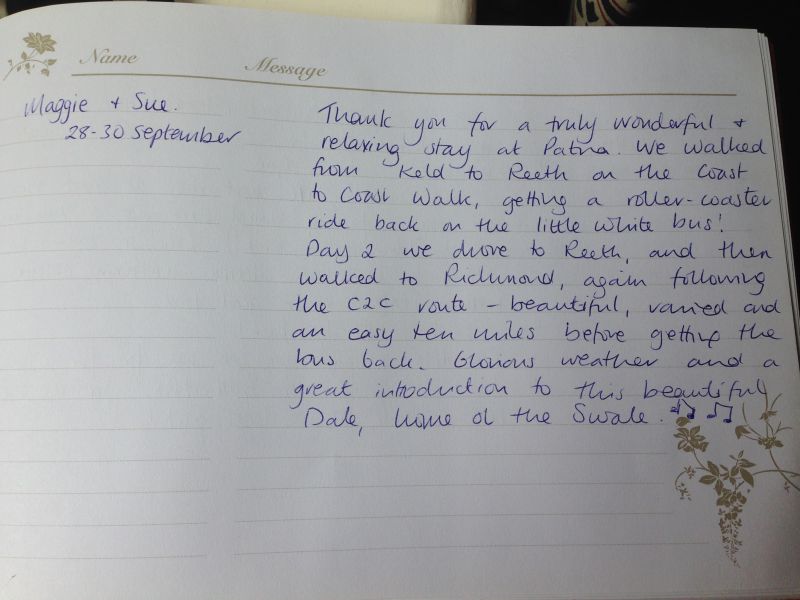 Name Message
Maggie + Sue.
28-30 September
Thank you for a truly wonderful +
relaxing stay at Patna. We walked
from Keld to Reeth on the Coast
to Coast Walk, getting a roller-coaster
ride back on the little white bus!
Day 2 we drove to Reeth, and then
walked to Richmond, again following
the C2C route - beautiful, varied and
an easy ten miles before getting the
bus back. Glorious weather and a
great introduction to this beautiful
Dale, home of the Swale.